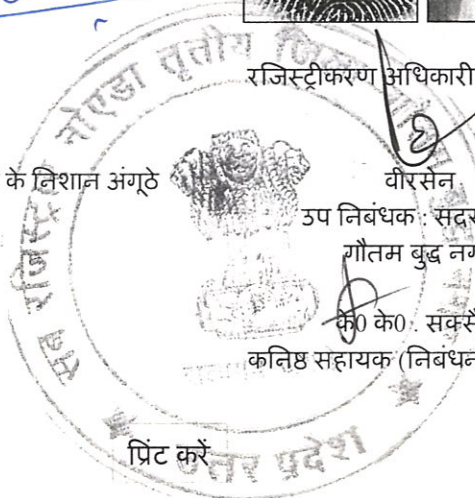 रजिस्ट्रीकरण अधिकारी
के निशान अंगूठे
वीरसेन
उप निबंधक : सदर
गौतम बुद्ध नग
के0 के0 . सक्सै
कनिष्ठ सहायक (निबंधन
प्रिंट करें
सब रजिस्ट्रार नोएडा तृतीय
उत्तर प्रदेश